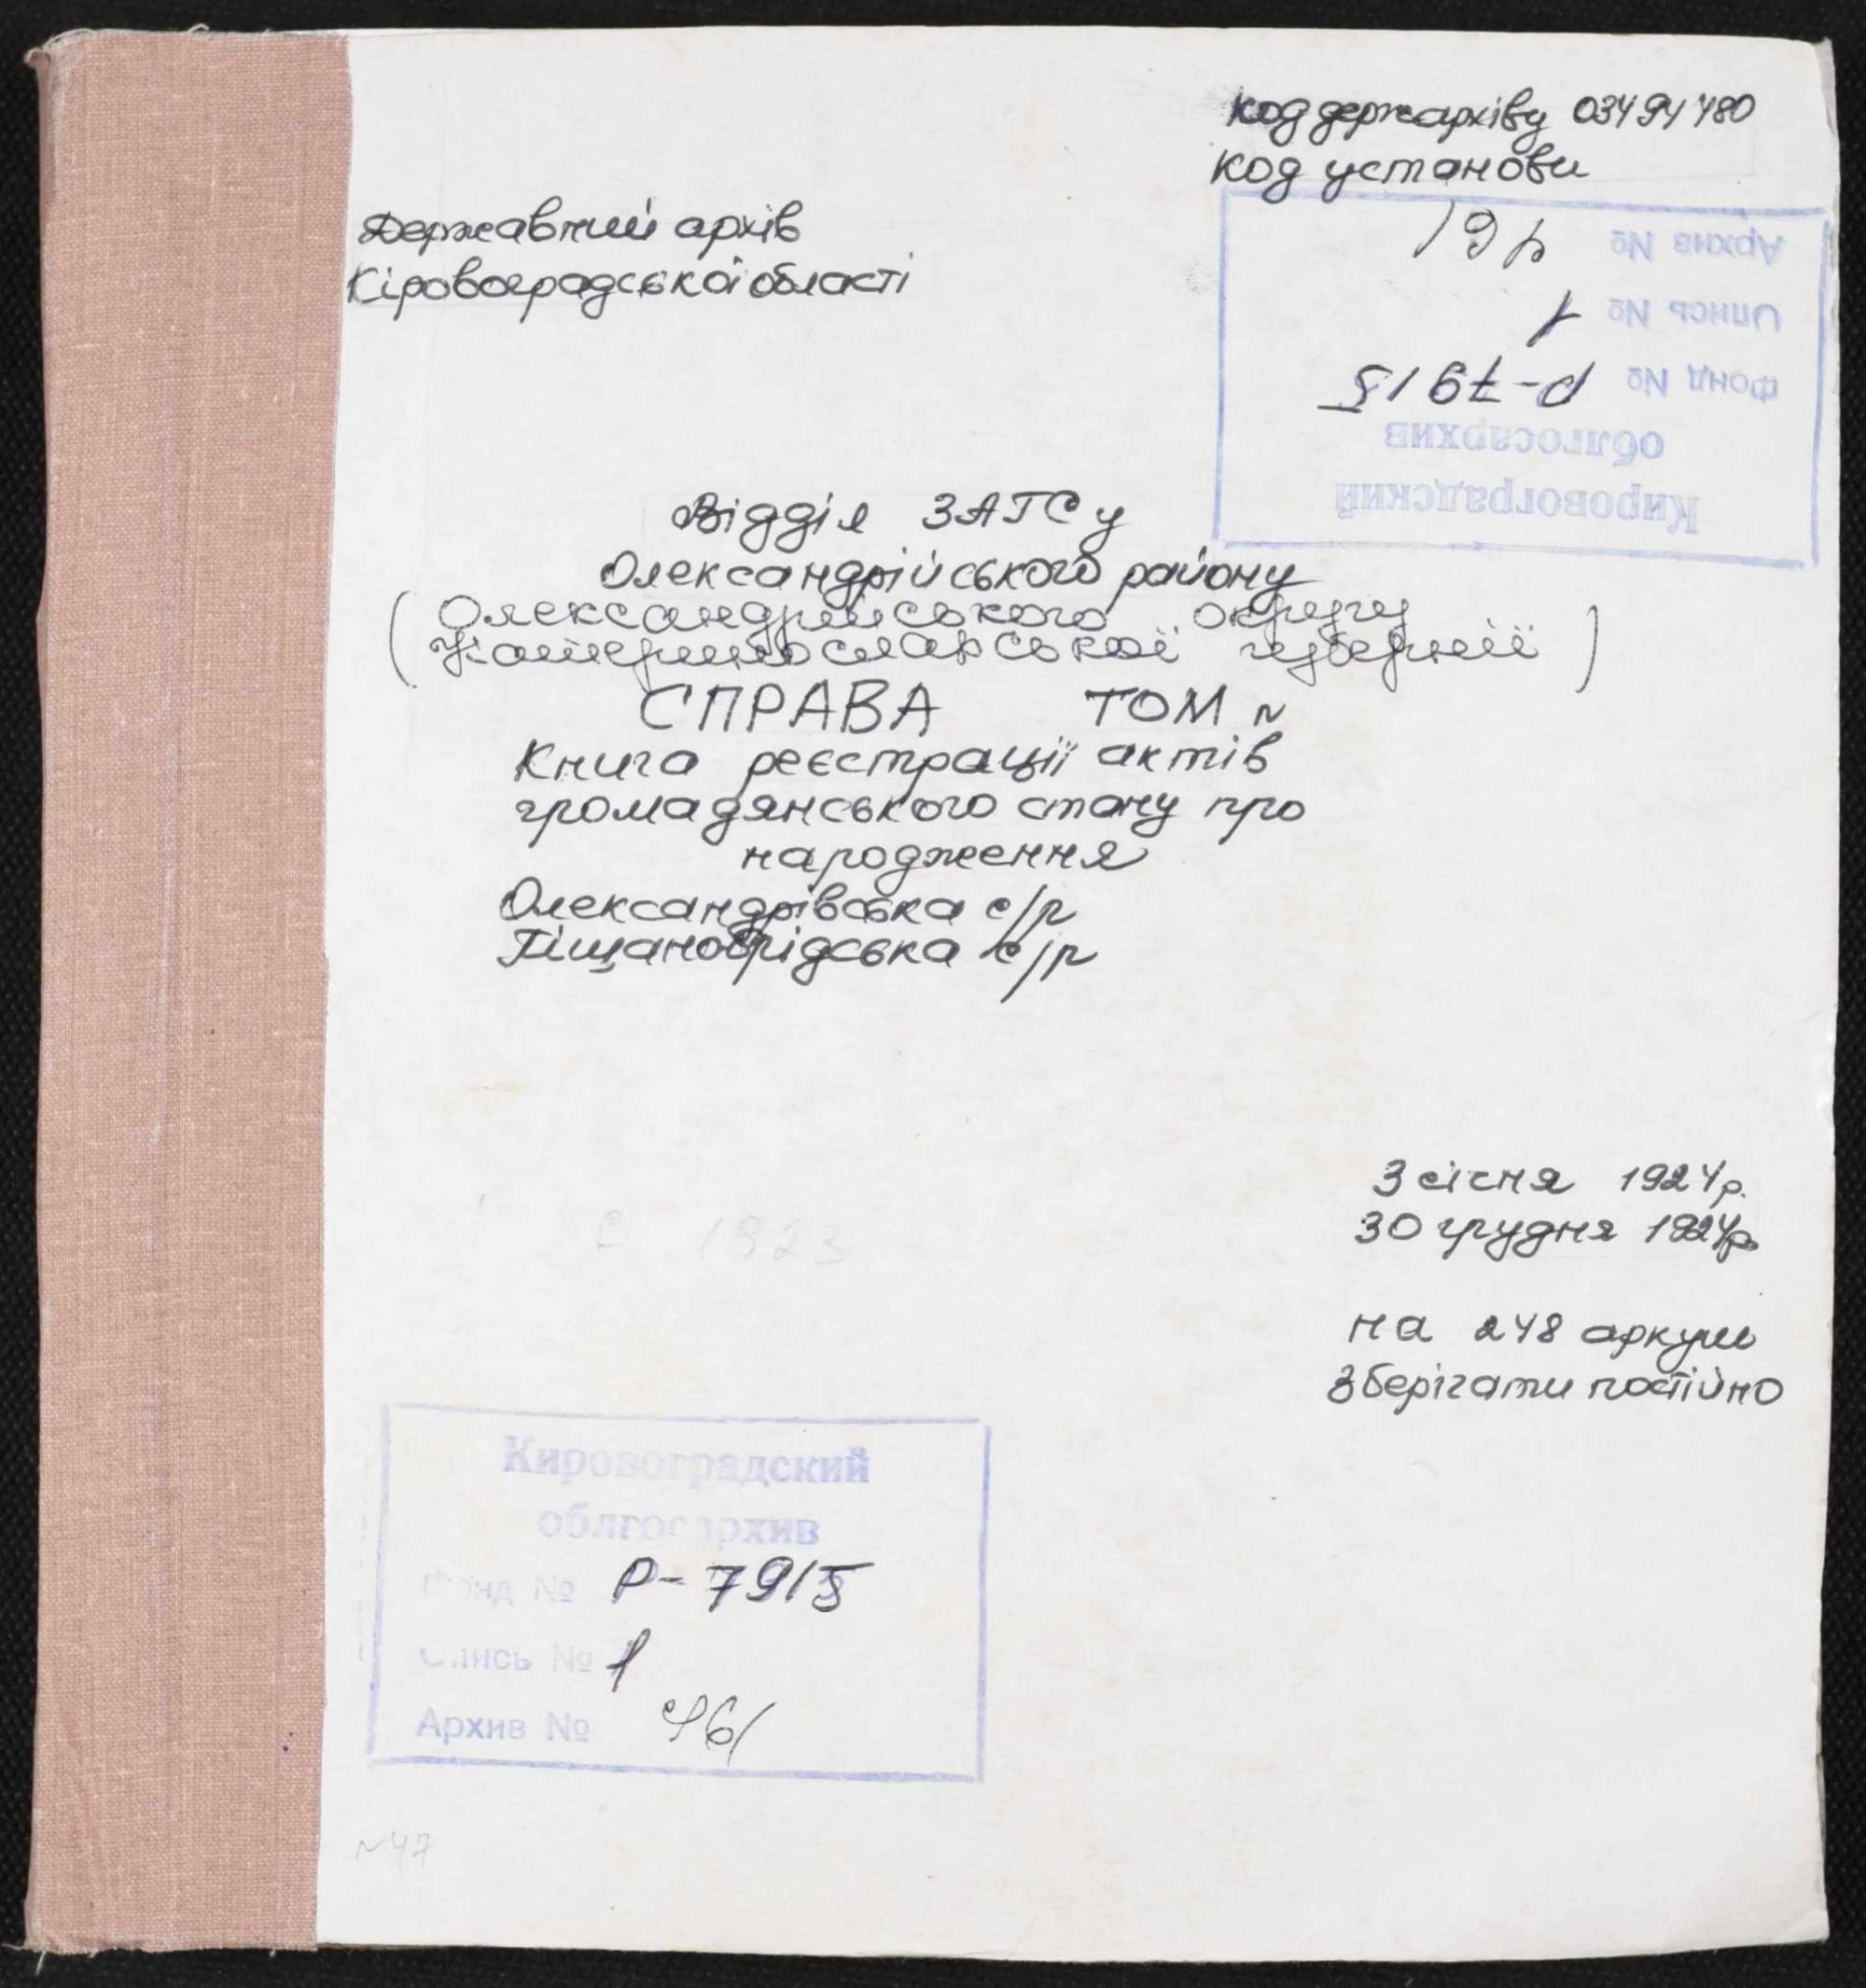 код держархіву 03494480
код установи
Державний архів
Кіровоградської області
Кировоградский
облгосархив
Фонд № Р-7915
Опись № 1
Архив № 461
Відділ ЗАГСу
Олександрійського району
(Олександрійського округу
Катеринославської губернії)
СПРАВА ТОМ №
Книга реєстрації актів
громадянського стану про
народження
Олександрівська с/р
Піщанобрідська с/р
3 січня 1924р.
30 грудня 1924р.
1923
на 248 аркуш
Зберігати постійно
Кировоградский
облгосархив
Фонд № Р-7915
Опись № 1
Архив № 461
№47